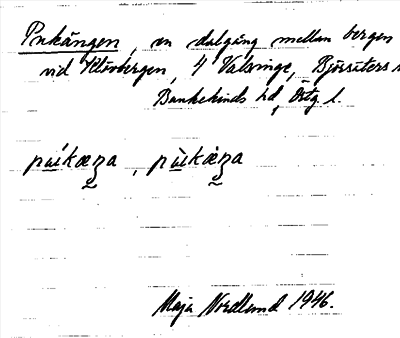 Pukängen, en dalgång mellan bergen
vid Klövbergen, 4 Valsinge, Björsäters s
Bankekinds hd, Östg. l.
pu̲íkæŋa, pu̲ìkæ̀ŋa
Maja Nordlund 1946.